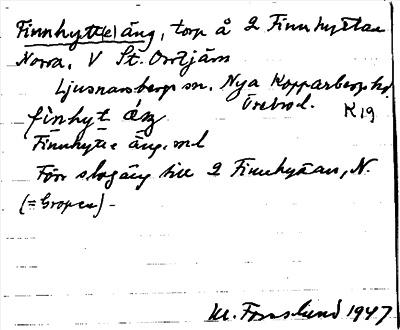 Finnhytt(e)äng, torp å 2 Finnhyttan
Norra, V St. Orrtjärn
Ljusnarsbergs sn. Nya Kopparbergs hd.
Örebro l. K19
finhyt äŋ
Finnhytte äng. ml
Förr slogäng till 2 Finnhyttan, N.
(= Gropen) -
M. Forsslund 1947